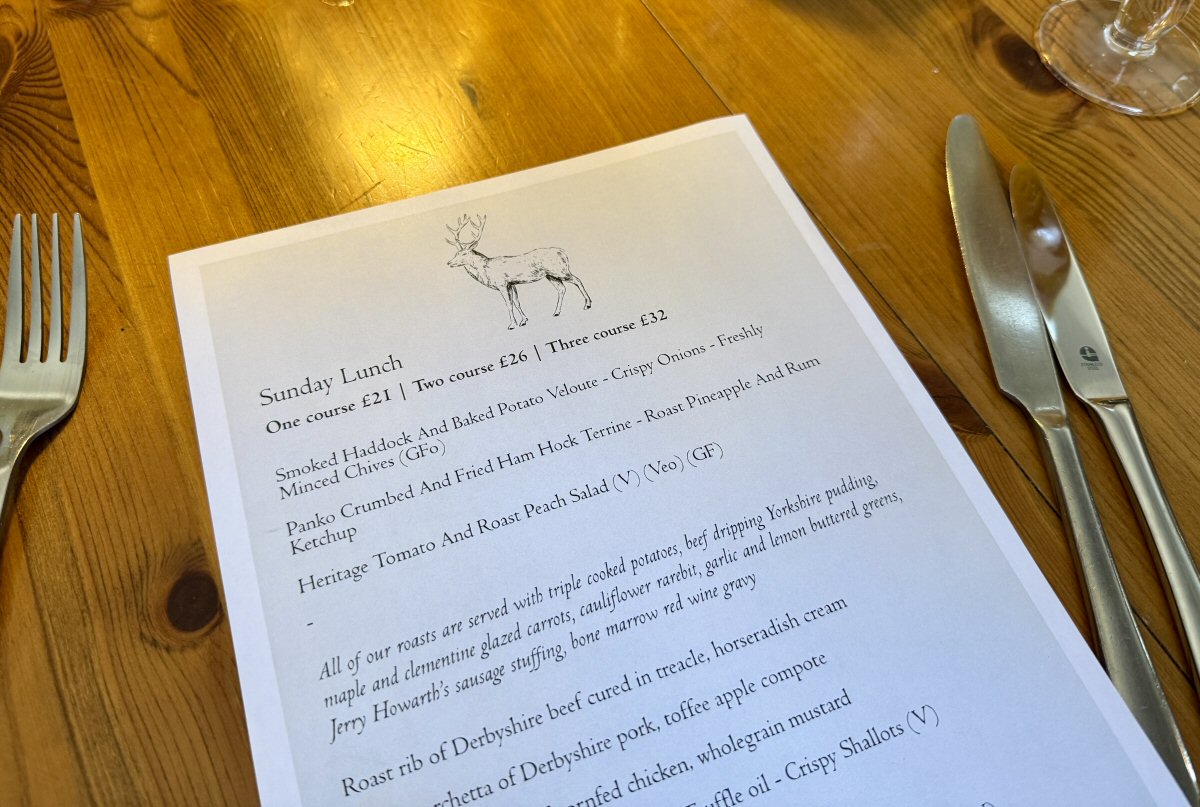 Sunday Lunch
One course £21 | Two course £26 | Three course £32
Smoked Haddock And Baked Potato Veloute - Crispy Onions - Freshly
Minced Chives (GFo)
Panko Crumbed And Fried Ham Hock Terrine - Roast Pineapple And Rum
Ketchup
Heritage Tomato And Roast Peach Salad (V) (Veo) (GF)
-
All of our roasts are served with triple cooked potatoes, beef dripping Yorkshire pudding,
maple and clementine glazed carrots, cauliflower rarebit, garlic and lemon buttered greens,
Jerry Howarth's sausage stuffing, bone marrow red wine gravy
Roast rib of Derbyshire beef cured in treacle, horseradish cream
of Derbyshire pork, toffee apple compote
chicken, wholegrain mustard
Truffle oil - Crispy Shallots (V)